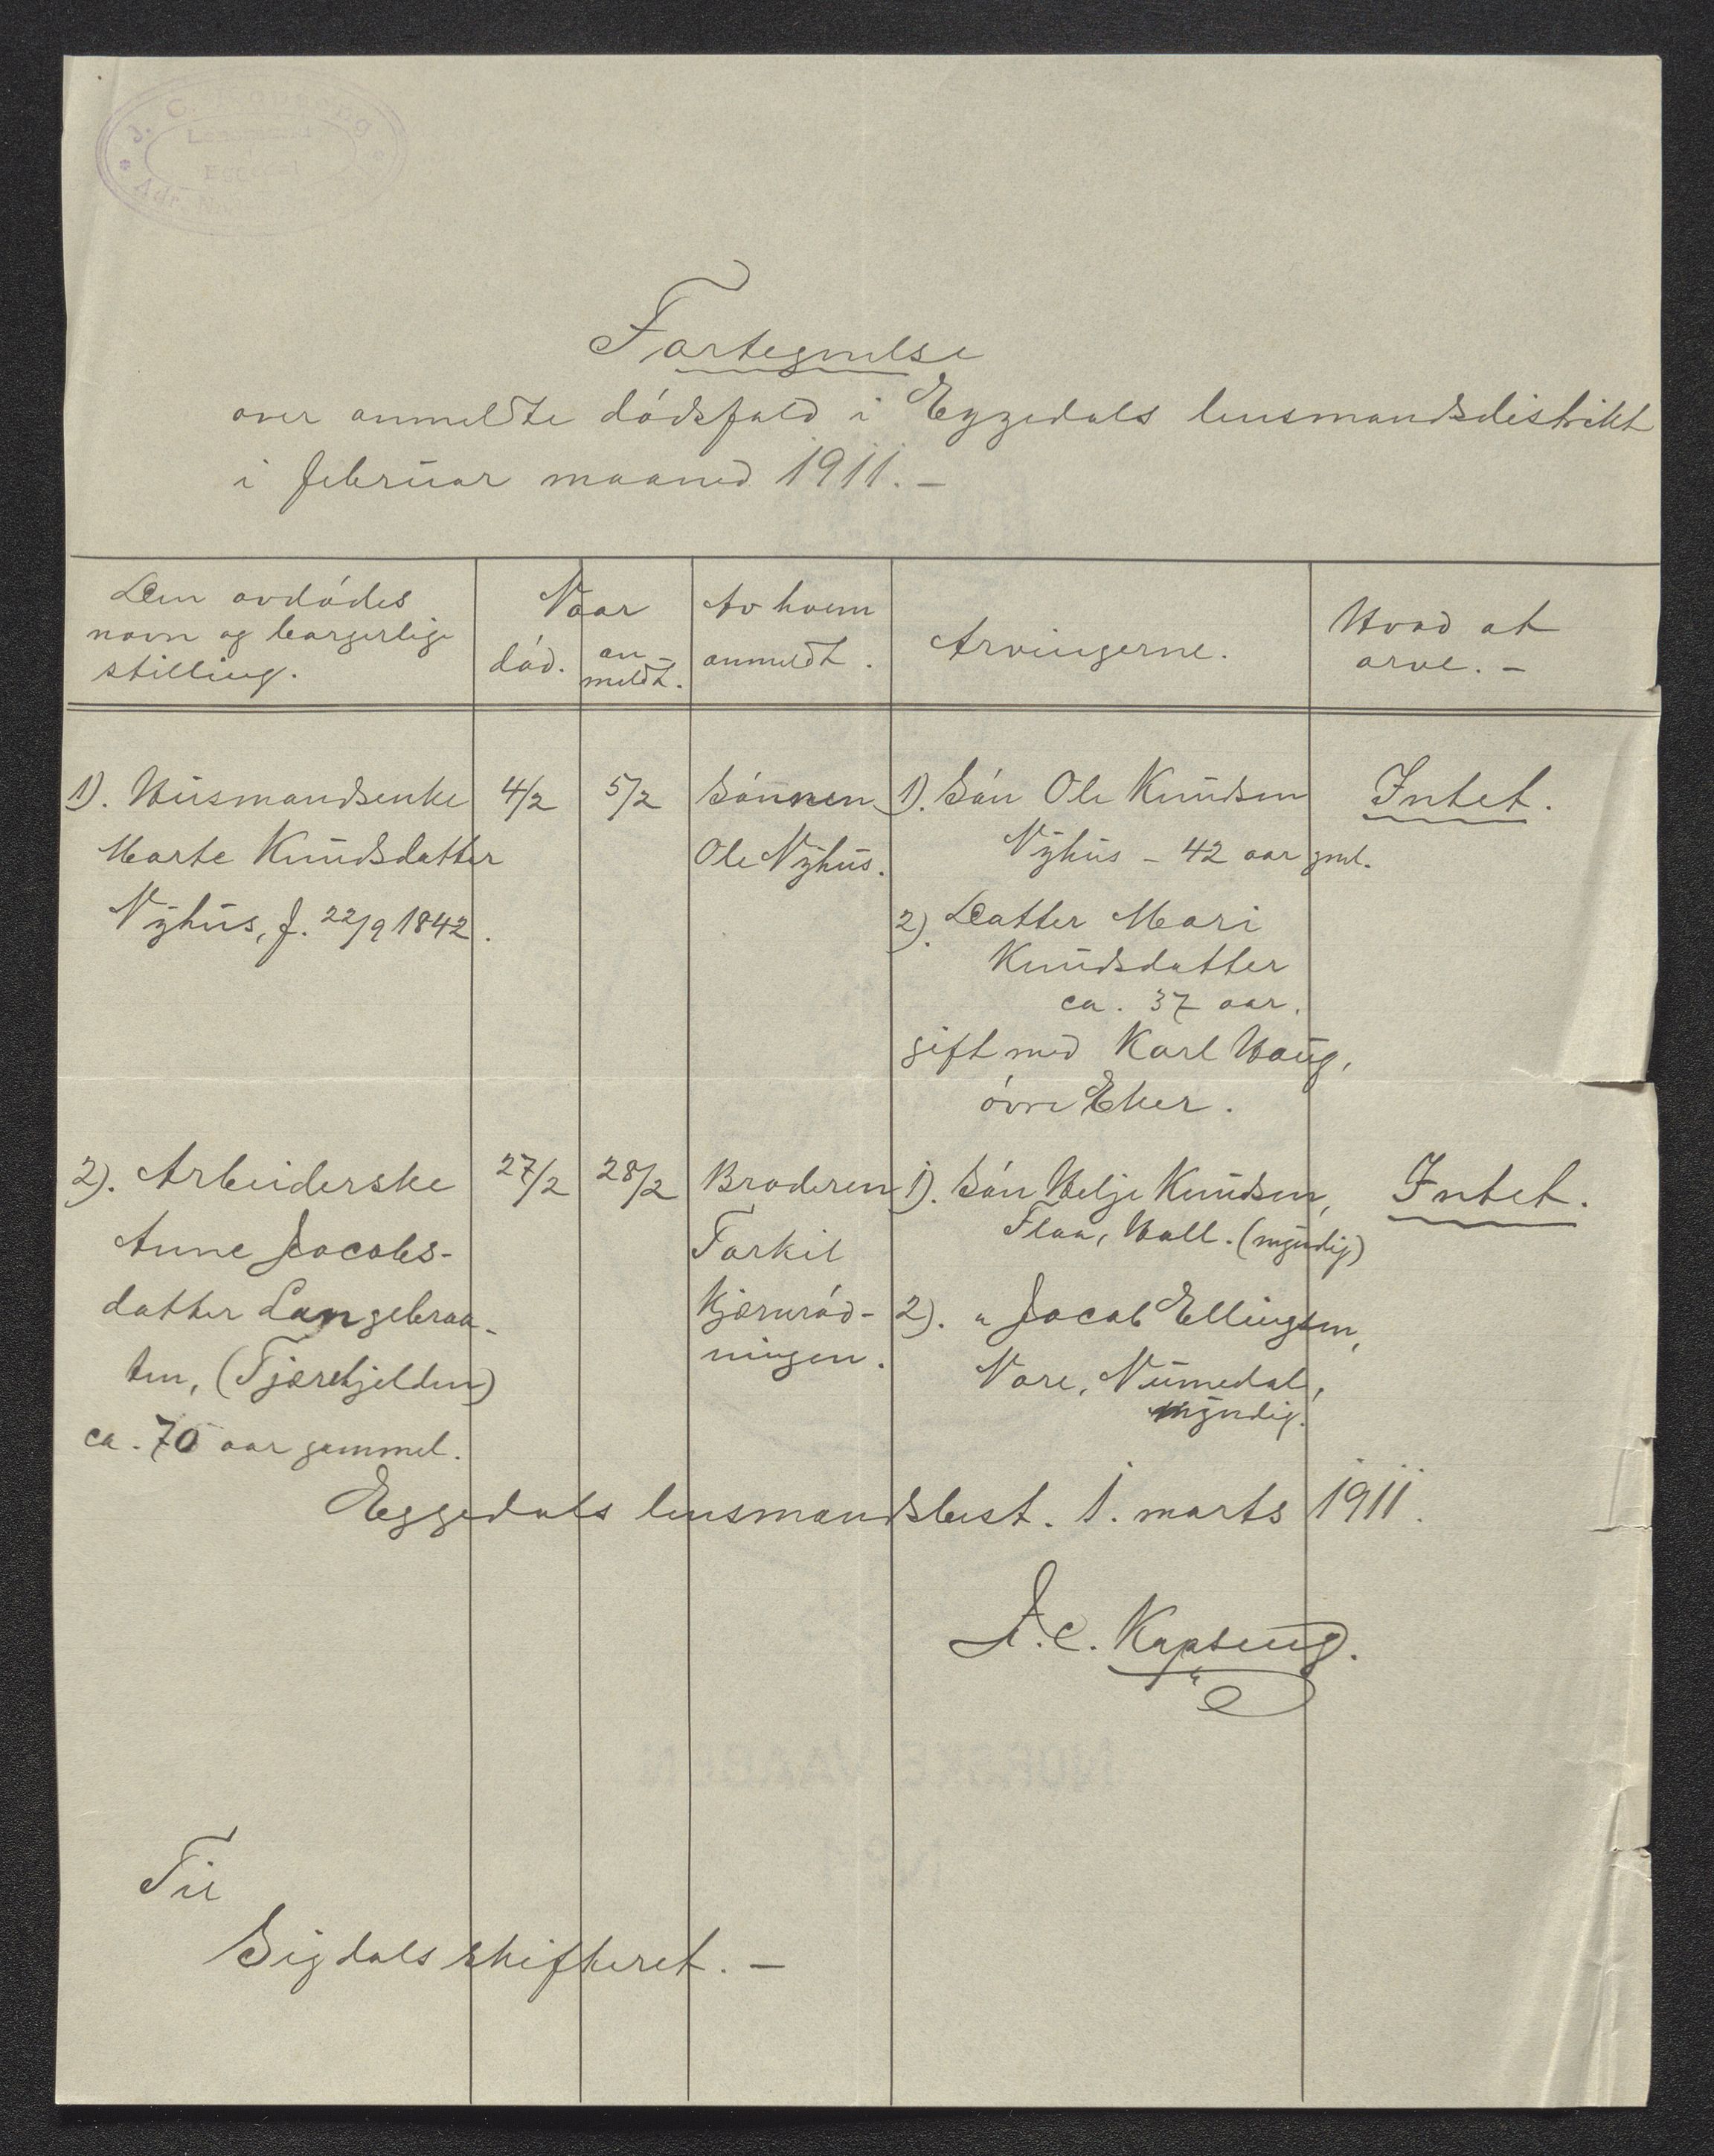 Fortegnelse
over anmeldte dödsfald i Eggedals lensmandsdistrikt
i februar maaned 1911. –
Den avdödes navn og borgerlige stilling.
Naar
död.
an-meldt.
Av hvem anmeldt.
Arvingerne.
Hvad at arve. –
1). Husmandsenke
Marte Knudsdatter
Nyhus, f. 22/9 1842.
4/2
5/2
Sönnen
Ole Nyhus.
1). Sön Ole Knudsen
Nyhus – 42 aar gml.
2). Datter Mari
Knudsdatter
ca. 37 aar.
gift med Karl Haug,
övre Eker.
Intet.
2). Arbeiderske
Anne Jacobs-
datter Langebraa-
ten, (Tjærekjelden)
ca. 70 aar gammel.
27/2
28/2
Broderen
Torkil
Kjærnröd-
ningen.
1). Sön Helje Knudsen,
Flaa, Hall. (myndig)
2). " Jacob Ellingsen,
Nore, Numedal,
myndig.
Intet.
Eggedals lensmandsbest. 1. marts 1911.
J. C. Kopseng.
Til
Sigdals skifteret. –